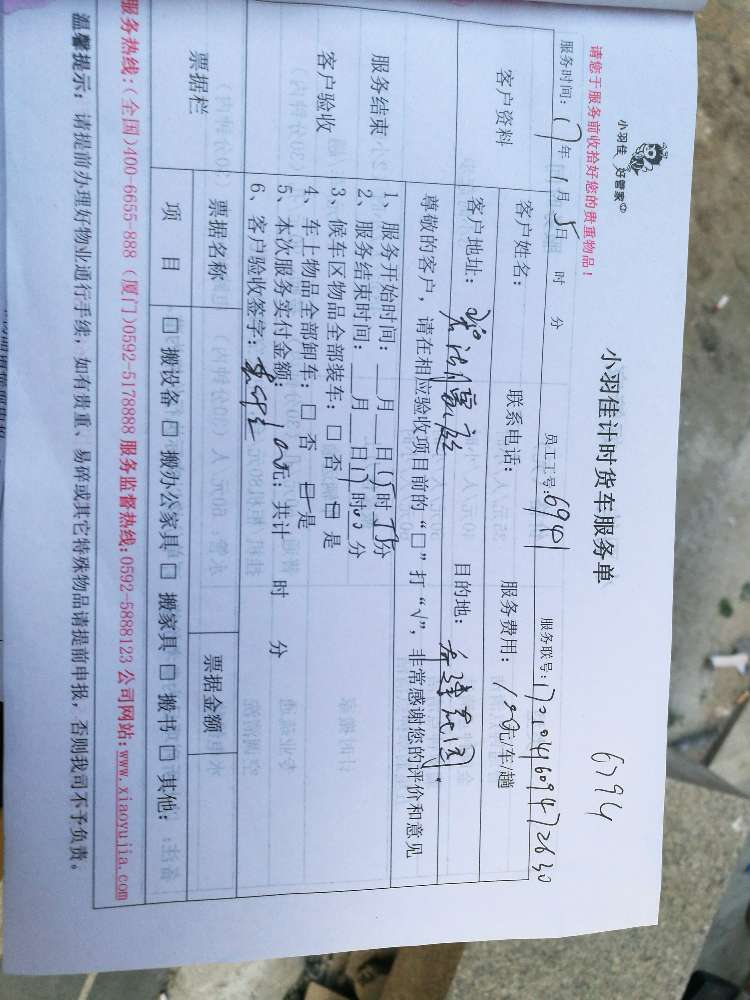 小羽佳 好管家
6794
小羽佳计时货车服务单
请您于服务前收拾好您的贵重物品！
服务时间：17年11月5日 时 分 员工工号：6941 服务联号：
客户资料 客户姓名： 联系电话： 服务费用：100元/车/趟
客户地址： 目的地：
尊敬的客户，请在相应验收项目前的“□”打“√”，非常感谢您的评价和意见
服务结束
客户验收
1、服务开始时间：__月__日15时55分
2、服务结束时间：__月__日17时00分
3、候车区物品全部装车：□ 否 □ 是
4、车上物品全部卸车：□ 否 □ 是
5、本次服务实付金额：100元；共计 时 分
6、客户验收签字：
票据栏 票据名称 票据金额
项 目 □ 搬设备 □ 搬办公家具 □ 搬家具 □ 搬书 □ 其他：
服务热线：(全国)400-6655-888 (厦门)0592-5178888 服务监督热线：0592-5888123 公司网站：www.xiaoyujia.com
温馨提示：请提前办理好物业通行手续，如有贵重、易碎或其它特殊物品请提前申报，否则我司不予负责。